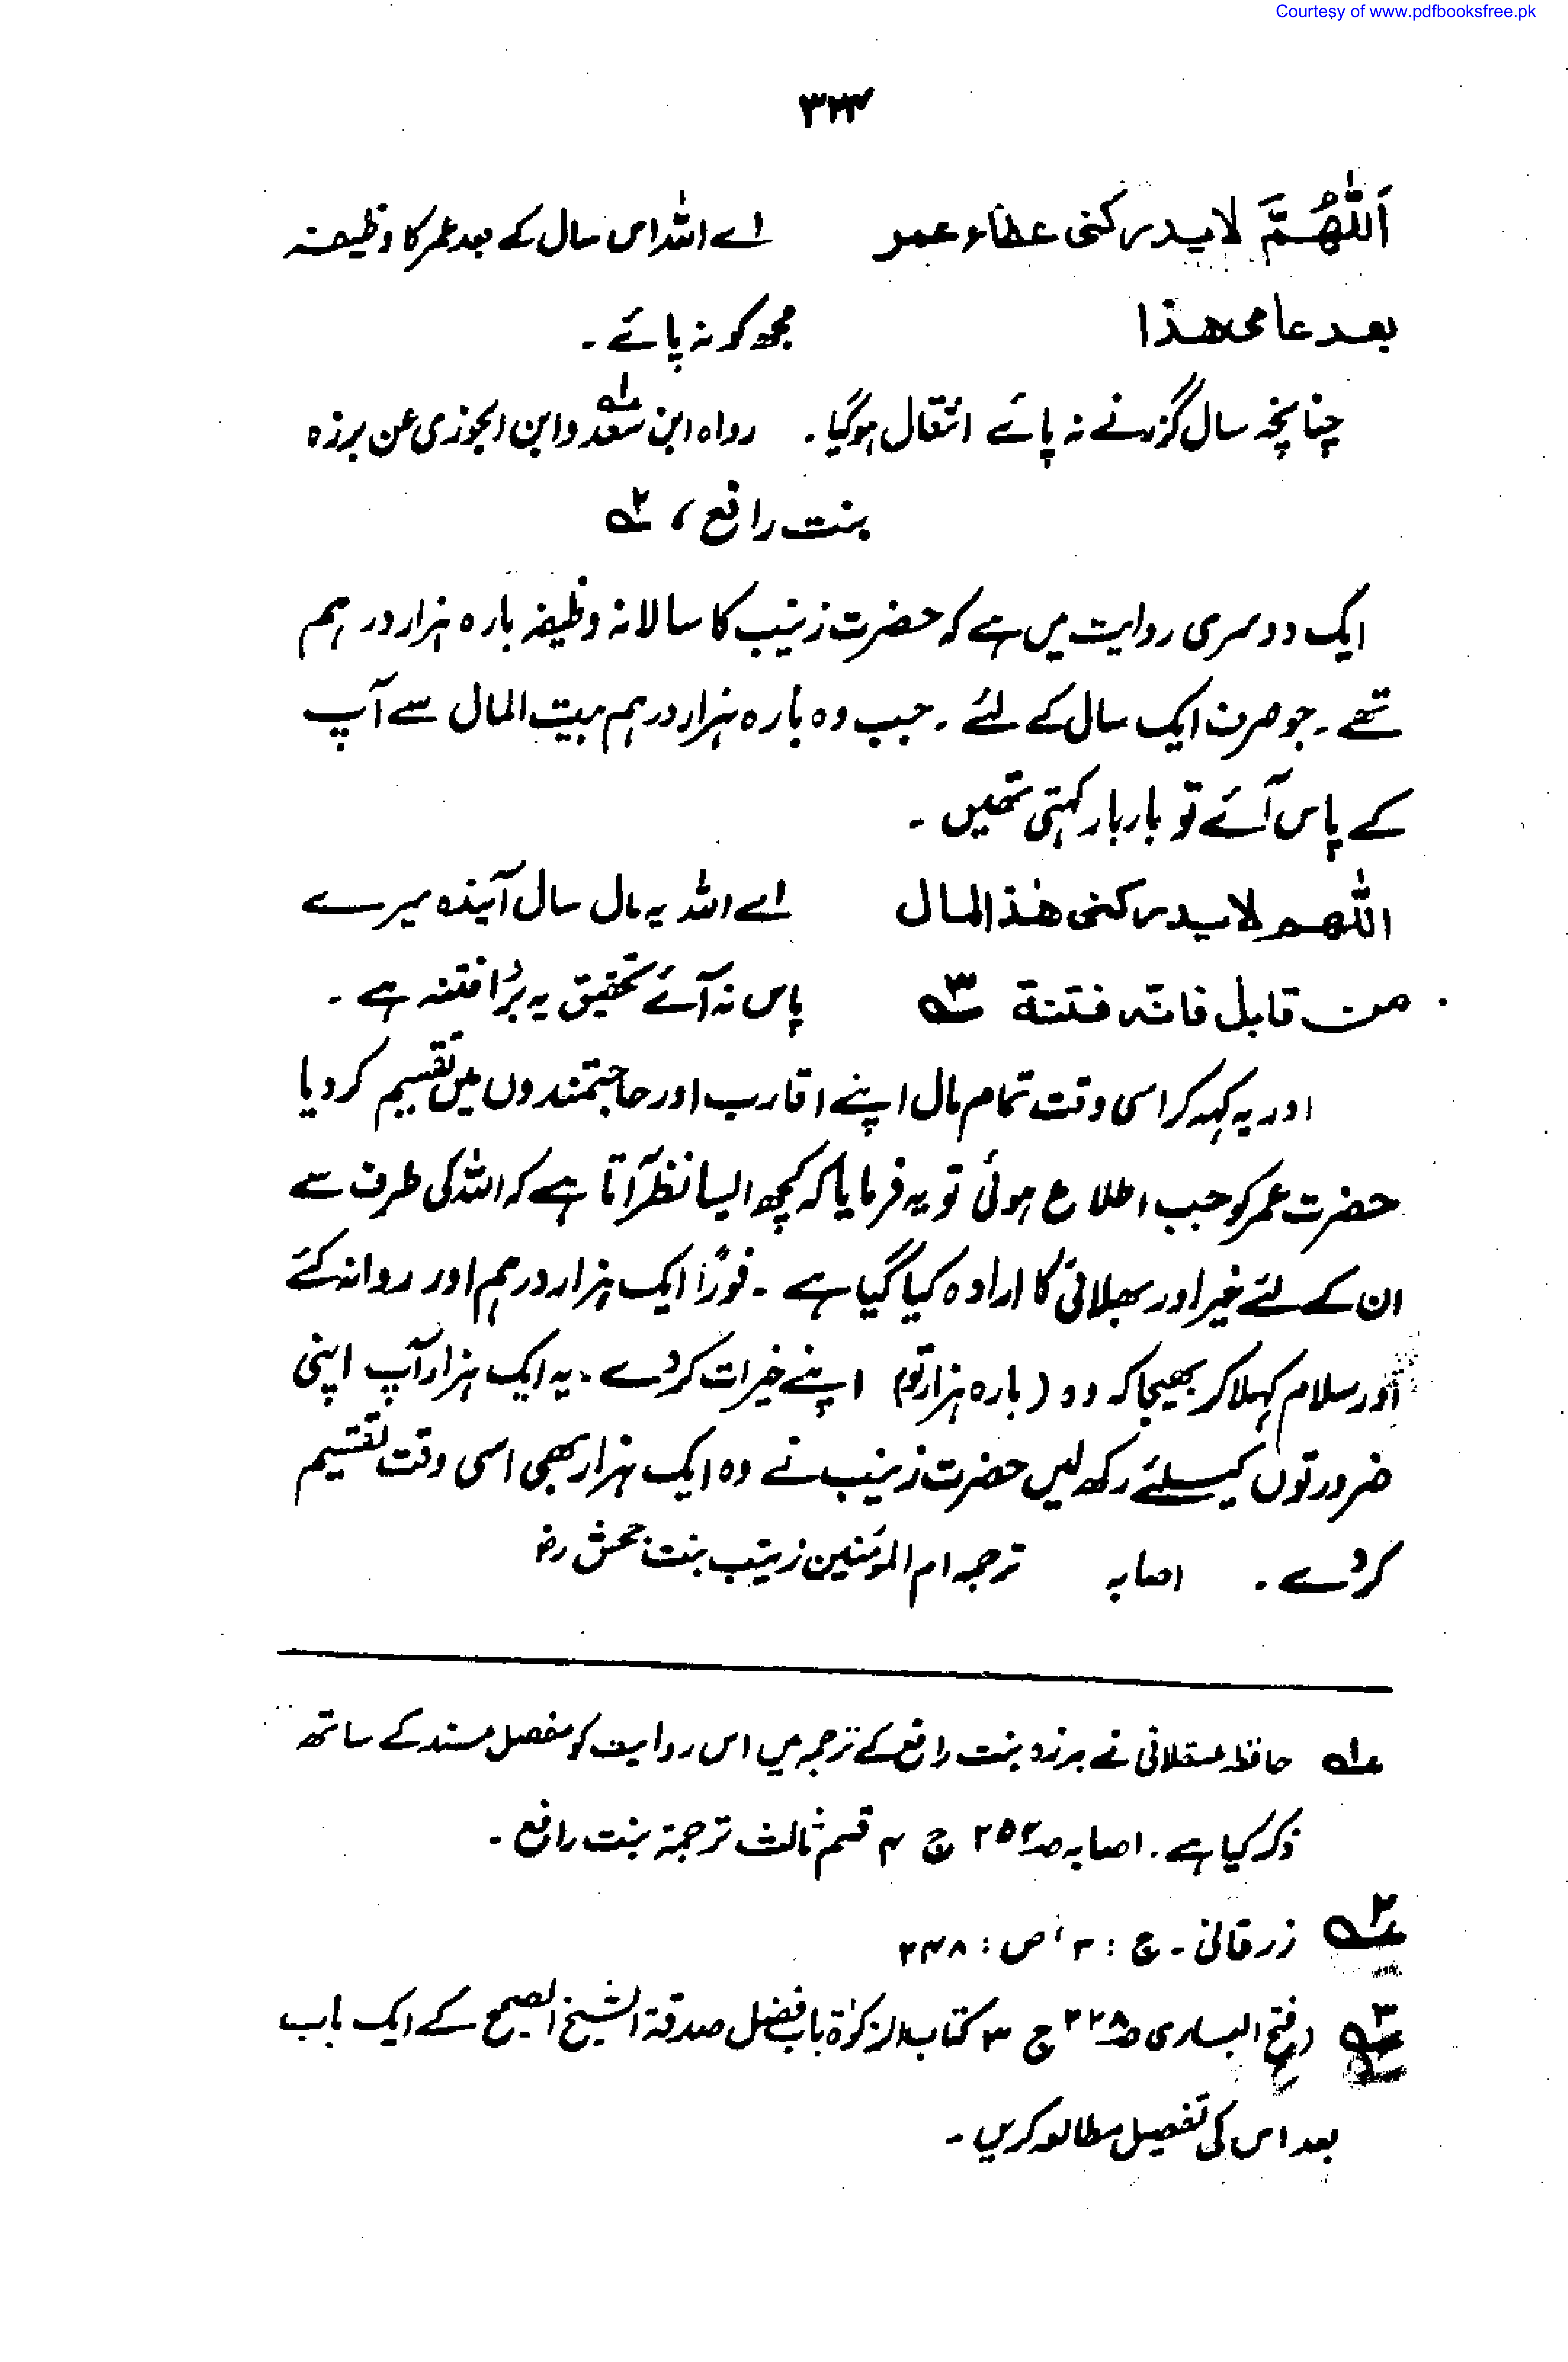 Courtesy of www.pdfbooksfree.pk
۳۲۴
اَللّٰهُمَّ لا يدركنى عطاء عمر اے اللہ اس سال کے بعد عمر کا وظیفہ
بعد عامى هذا مجھ کو نہ پائے ۔
چنانچہ سال گزرنے نہ پائے انتقال ہوگیا ۔ رواہ ابن سعد ؎۱ وابن الجوزی عن برزہ
بنت رافع ، ؎۲
ایک دوسری روایت میں ہے کہ حضرت زینب کا سالانہ وظیفہ بارہ ہزار درہم
تھے ۔ جو صرف ایک سال کے لئے ۔ جب وہ بارہ ہزار درہم بیت المال سے آپ
کے پاس آئے تو بار بار کہتی تھیں ۔
اللهم لا يدركنى هٰذا المال اے اللہ یہ مال سال آیندہ میرے
من قابل فانّه فتنة ؎۳ پاس نہ آئے تحقیق یہ بڑا فتنہ ہے ۔
اور یہ کہہ کر اسی وقت تمام مال اپنے اقارب اور حاجتمندوں میں تقسیم کر دیا
حضرت عمر کو جب اطلاع ہوئی تو یہ فرمایا کہ کچھ ایسا نظر آتا ہے کہ اللہ کی طرف سے
ان کے لئے خیر اور بھلائی کا ارادہ کیا گیا ہے ۔ فوراً ایک ہزار درہم اور روانہ کئے
اور سلام کہلا کر بھیجا کہ وہ (بارہ ہزار تو) اپنے خیرات کر دے ۔ یہ ایک ہزار آپ اپنی
ضرورتوں کیلئے رکھ لیں حضرت زینب نے وہ ایک ہزار بھی اسی وقت تقسیم
کر دے ۔ اصابہ ترجمہ ام المومنین زینب بنت جحش رض
؎۱ حافظ عسقلانی نے برزہ بنت رافع کے ترجمہ میں اس روایت کو مفصل مسند کے ساتھ
ذکر کیا ہے ۔ اصابہ صـ۲۵۲ ج ۴ قسم ثالث ترجمۃ بنت رافع ۔
؎۲ زرقانی ۔ ج : ۳ ، ص : ۲۴۸
؎۳ (فتح الباری صـ۲۲۸ ج ۳ کتاب الزکوٰۃ باب فضل صدقۃ الشیخ الصیح کے ایک باب
بعد اس کی تفصیل مطالعہ کریں ۔